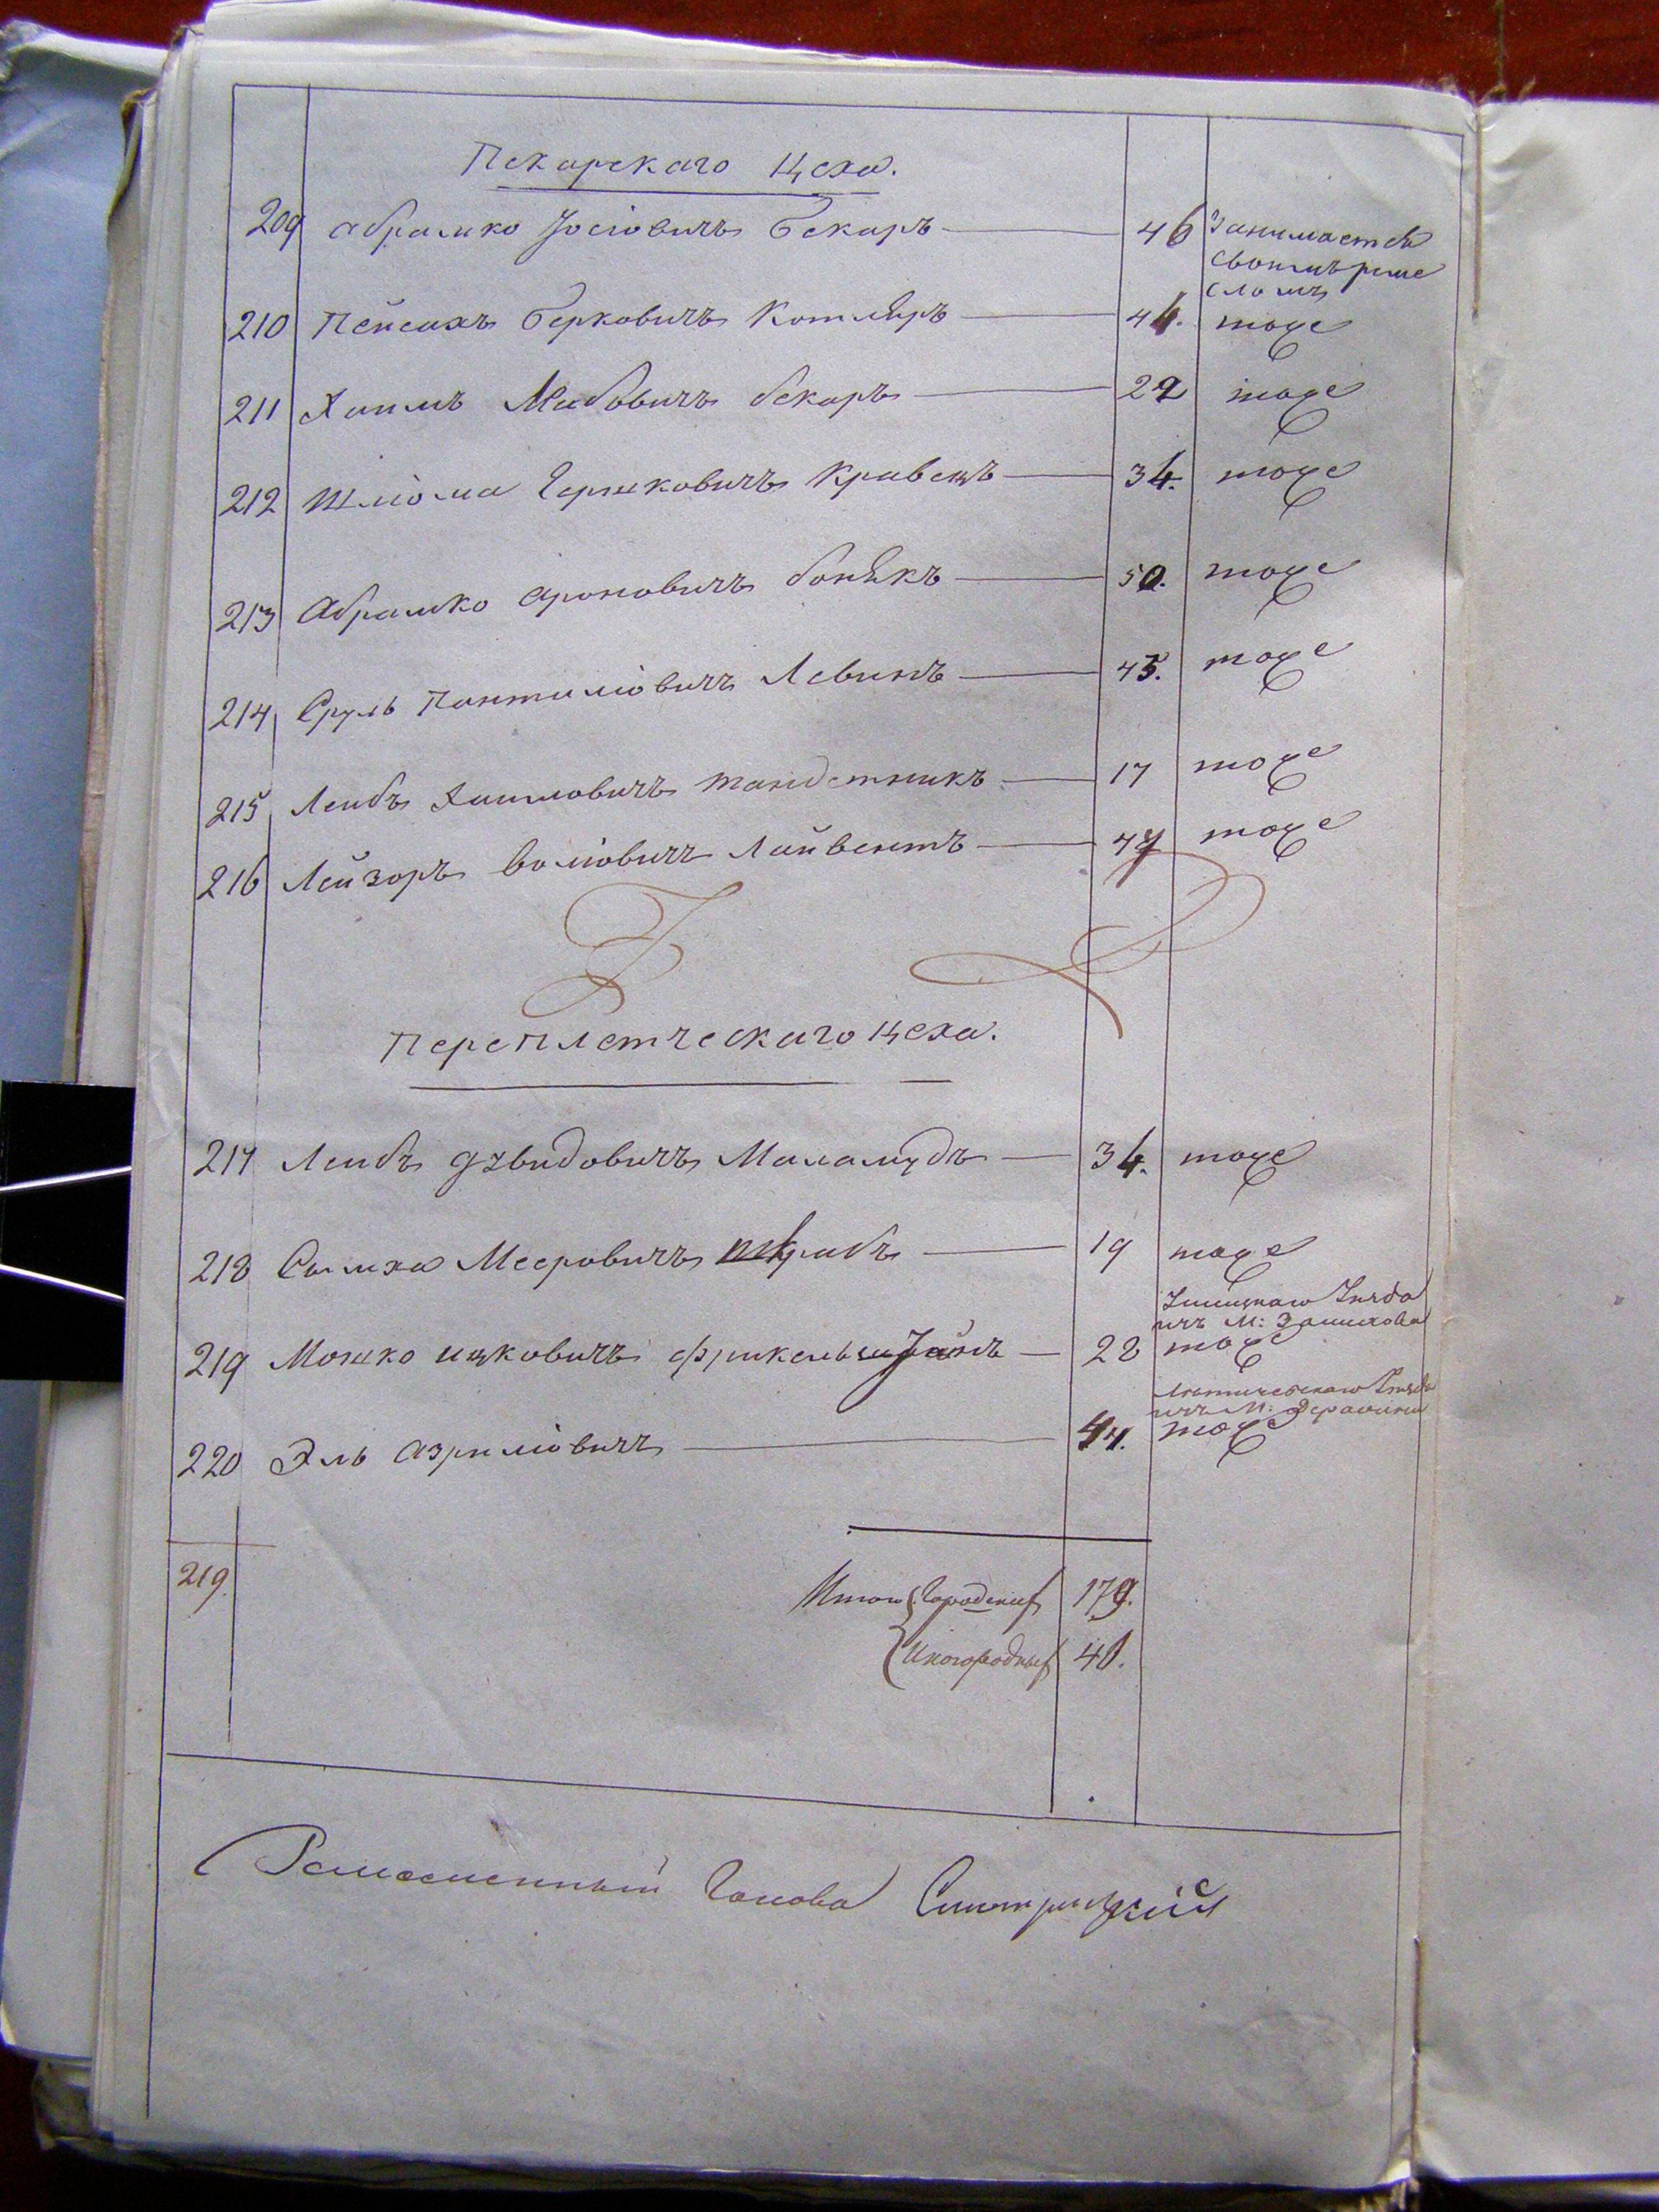 Пекарскаго Цеха.
209 Абрамко Іосіовичъ бекаръ 46 Занимается
своимъ реме
сломъ
210 Пейсахъ берковичъ Котляръ 44. тоже
211 Хаимъ Лейбовичъ бекаръ 22 тоже
212 Шліома Гершковичъ Кравецъ 34. тоже
213 Абрамко Ароновичъ бонякъ 50. тоже
214 Сруль Пантиліовичъ Левинъ 45. тоже
215 Лейбъ Хаимовичъ тандетникъ 17 тоже
216 Лейзоръ воліовичъ Лайвентъ 47 тоже
Переплетческаго Цеха.
217 Лейбъ Дзвидовичъ Маламудъ 34. тоже
218 Сымха Мееровичъ шкрабъ 19 тоже
уѣзда
изъ М:
219 Мошко ицковичъ 28 тоже
уѣзда
изъ М: Деражни
220 Эль Азриліовичъ 44. тоже
219. Итого Городскихъ 179.
Иногородныхъ 40.
Ремесленный Голова